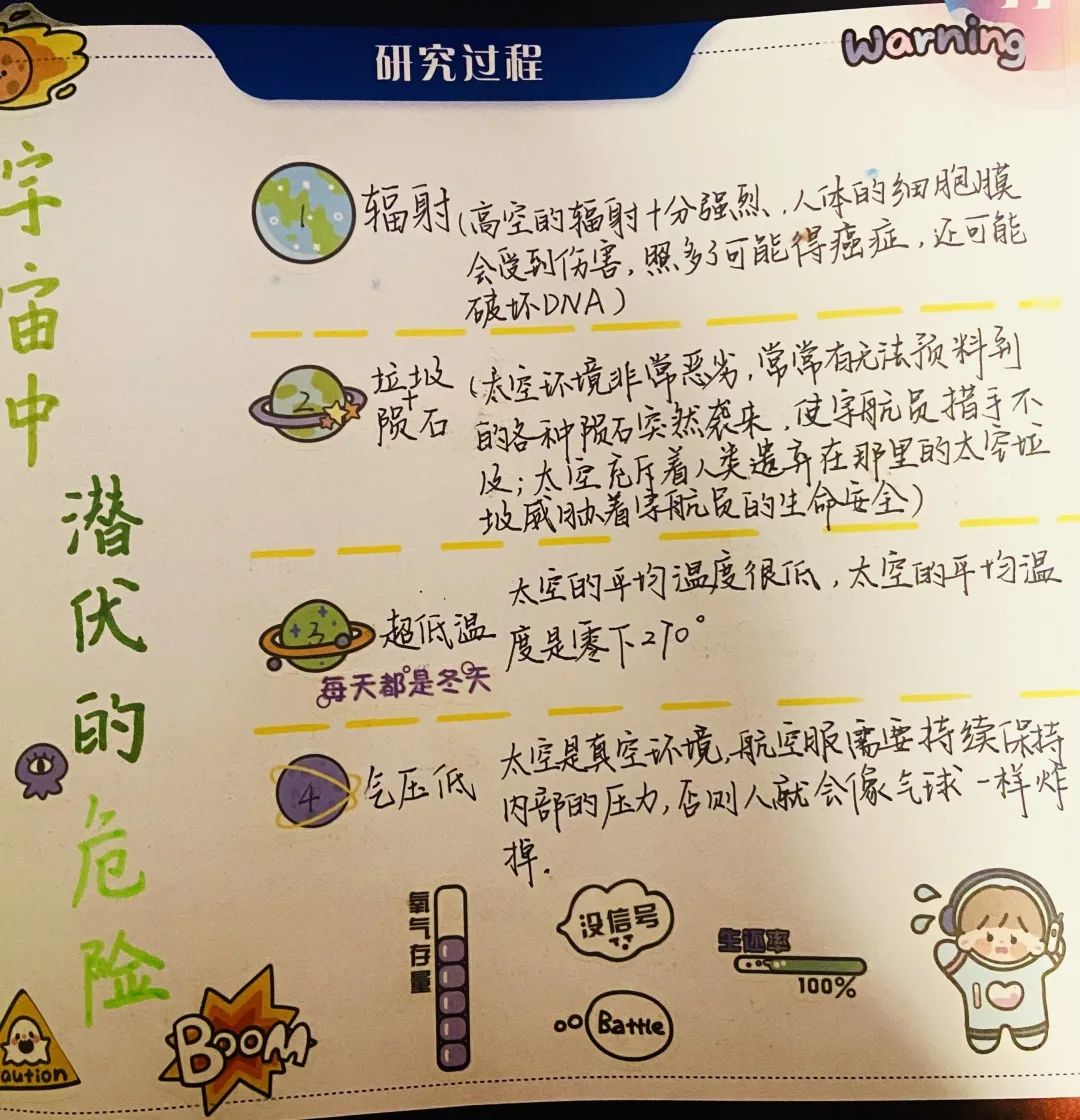 研究过程
Warning
宇宙中
潜伏的危险
1
辐射
(高空的辐射十分强烈、人体的细胞膜
会受到伤害,照多了可能得癌症,还可能
破坏DNA)
2
垃圾
+
陨石
(太空环境非常恶劣,常常有无法预料到
的各种陨石突然袭来,使宇航员措手不
及;太空充斥着人类遗弃在那里的太空垃
圾威胁着宇航员的生命安全)
3
超低温
每天都是冬天
太空的平均温度很低,太空的平均温
度是零下270°
4
气压低
太空是真空环境,航空服需要持续保持
内部的压力,否则人就会像气球一样炸
掉.
氧气存量
没信号
生还率
100%
Battle
BOOM
aution